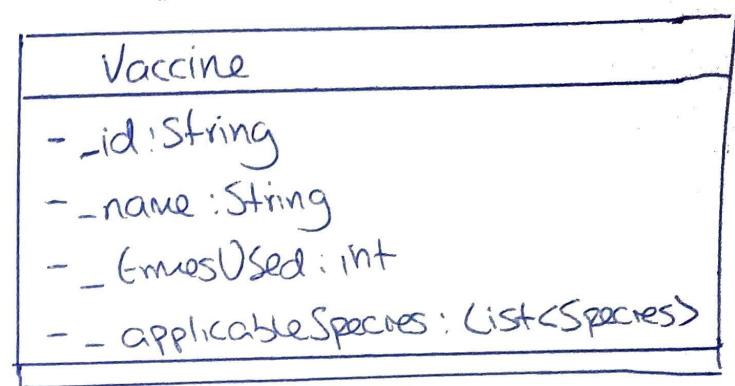 Vaccine
- _id: String
- _name: String
- _timesUsed: int
- _applicableSpecies: List<Species>